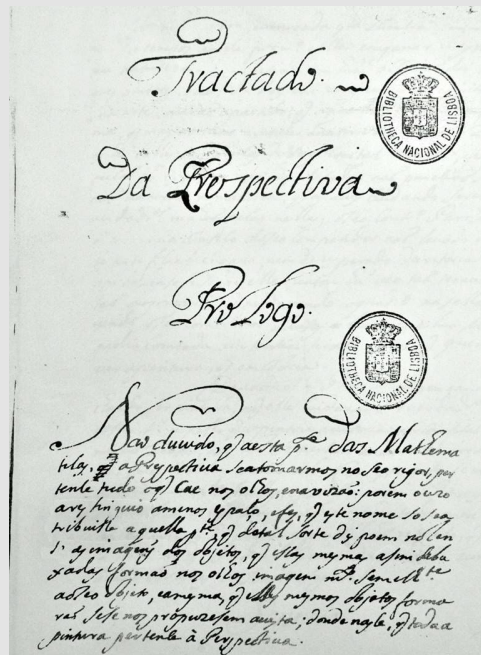 Tractado.
BIBLIOTHECA NACIONAL DE LISBOA
Da Prospectiva
Prologo.
BIBLIOTHECA NACIONAL DE LISBOA
Naõ duvido, q̃ a esta p.te das Mathema
ticas, a Perspectiva se a tomarmos no seo rigor, per
tence tudo o q̃ cae nos olhos, e na vizaõ: porem o uzo
este nome so se a
tribuisse a aquella p.te, q̃ de tal sorte dispoem
as imagens dos objetos, q̃ ellas mesmas assim deba
xadas formaõ nos olhos imagem m.to semelh.te
ao seo objeto, e a mesma, q̃ esses mesmos objetos forma
raõ se se nos propuzesem a vista; donde nasce, q̃ toda a
pintura pertence à Perspectiva.